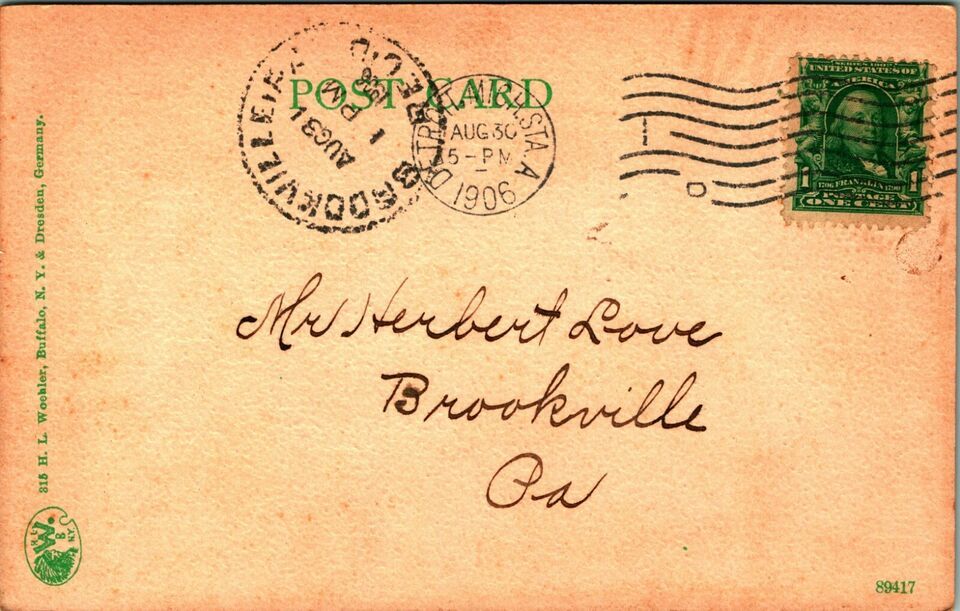 POST CARD
BROOKVILLE, PA.
REC'D
AUG 31
1 PM
1906
DETROIT, MICH. STA. A
AUG 30
5-PM
1906
D
SERIES 1902
UNITED STATES OF
AMERICA
1706 FRANKLIN 1790
1 1
POSTAGE
ONE CENT
Mr Herbert Love
Brookville
Pa
315 H. L. Woehler, Buffalo, N. Y. & Dresden, Germany.
H. L.
W.
B
N.Y.
89417